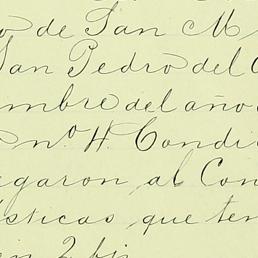 o de San M
San Pedro del C
mbre del año
nº 4. Condi
garon al Con
ísticas que ten
en 2 fis